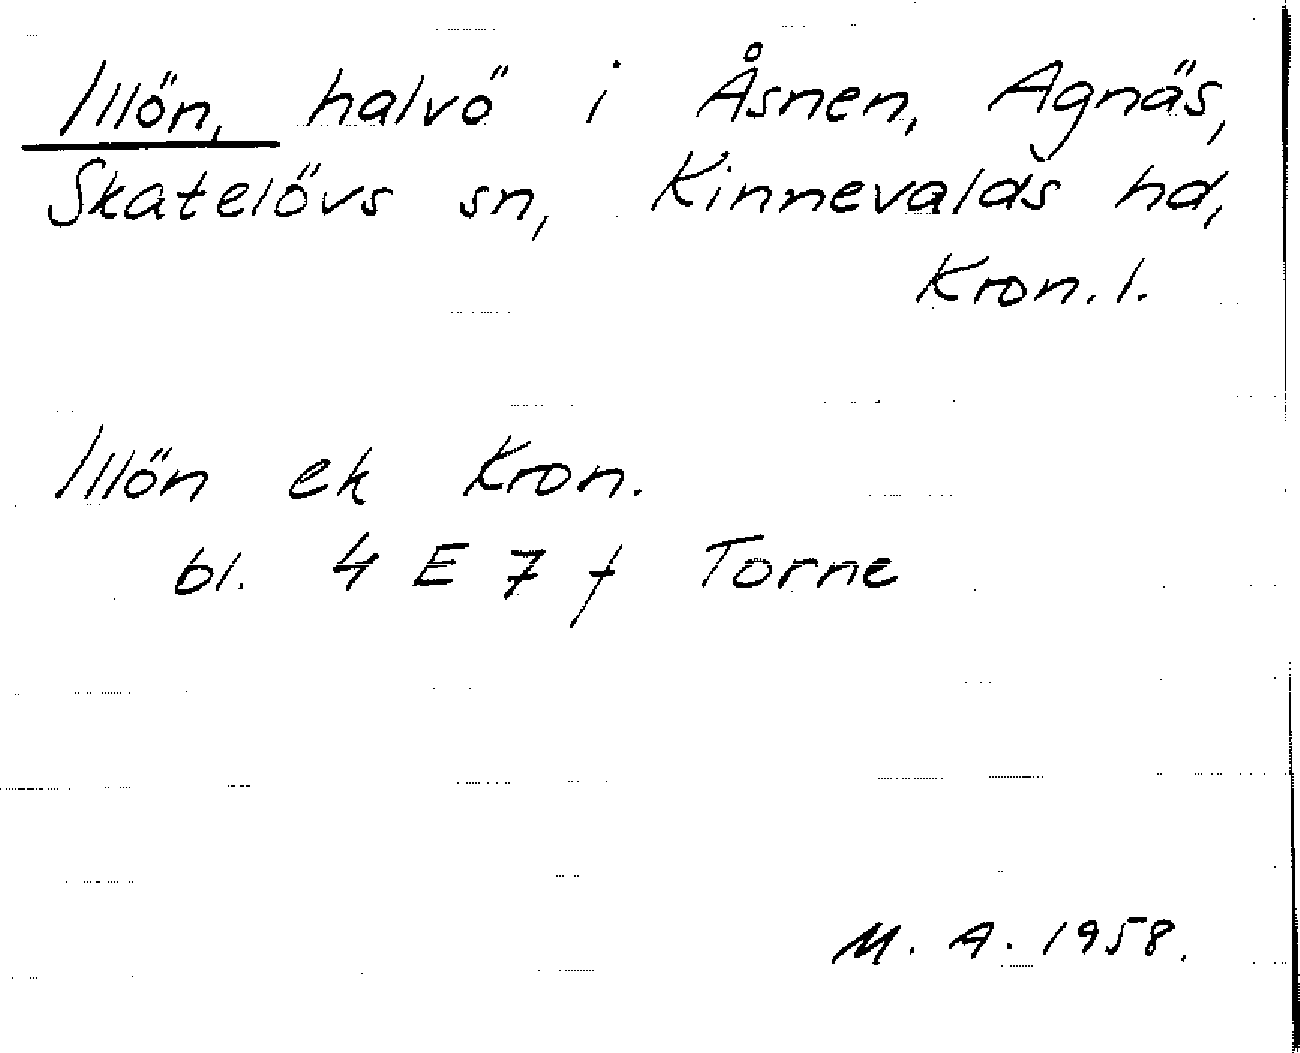 Illön, halvö i Åsnen, Agnäs,
Skatelövs sn, Kinnevalds hd,
Kron. l.
Illön ek Kron.
bl. 4 E 7 f Torne
M. A. 1958.